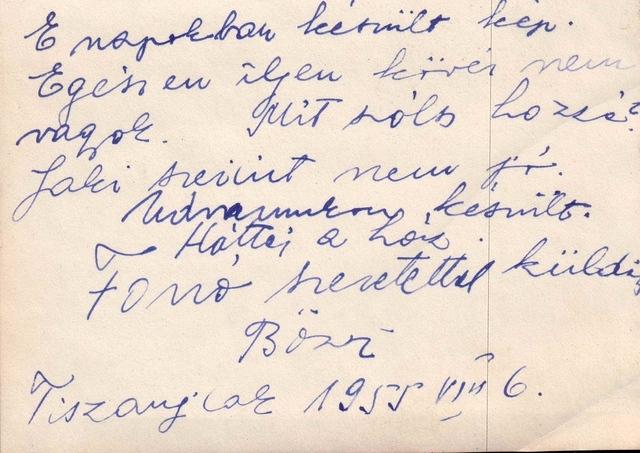 E napokban készült kép.
Egészen ilyen kövér nem
vagyok. Mit szólsz hozzá?
Laki szerint nem jó.
Udvarunkon készült.
Háttér a ház.
Forró szeretettel küldi
Bözsi
1955 VIII 6.